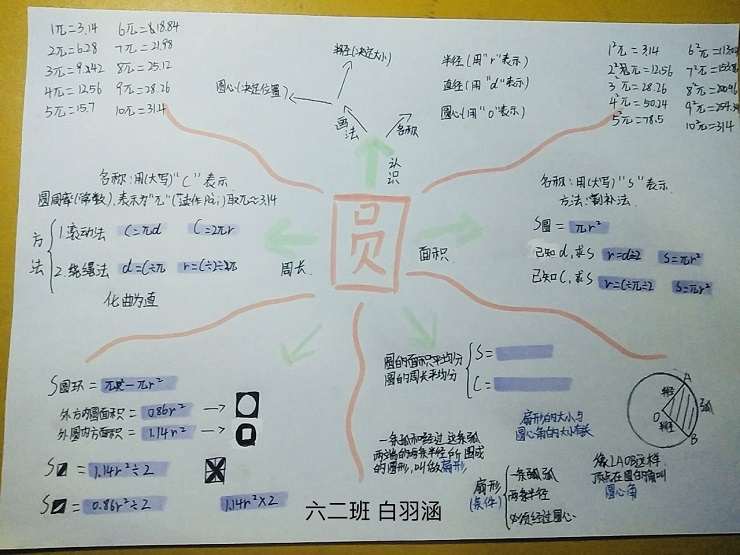 1π=3.14 6π=18.84
2π=6.28 7π=21.98
3π=9.42 8π=25.12
4π=12.56 9π=28.26
5π=15.7 10π=31.4
半径(决定大小)
圆心(决定位置)
画法
名称
认识
半径(用"r"表示)
直径(用"d"表示)
圆心(用"O"表示)
1²π=3.14
2²π=12.56
3²π=28.26
4²π=50.24
5²π=78.5
10²π=314
圆
名称:用(大写)"C"表示
圆周率(常数).表示为"π"(读作Pai;)取π≈3.14
方法
1.滚动法 C=πd C=2πr
2.绕绳法 d=C÷π r=C÷2π
化曲为直
周长.
面积.
名称:用(大写)"S"表示
方法:割补法.
S圆=πr²
已知d,求S r=d÷2 S=πr²
已知C,求S r=C÷π÷2 S=πr²
S圆环=πR²-πr²
外方内圆面积=0.86r²
外圆内方面积=1.14r²
S =1.14r²÷2
S =0.86r²÷2 1.14r²×2
圆的面积平均分 S=
圆的周长平均分 C=
一条弧和经过这条弧
两端的两条半径所围成
的图形,叫做扇形
扇形的大小与
圆心角的大小有关
扇形
(条件)
一条弧
两条半径
必须经过圆心.
A
半径
弧
O
半径
B
像∠AOB这样.
顶点在圆心的角叫
圆心角
六二班 白羽涵